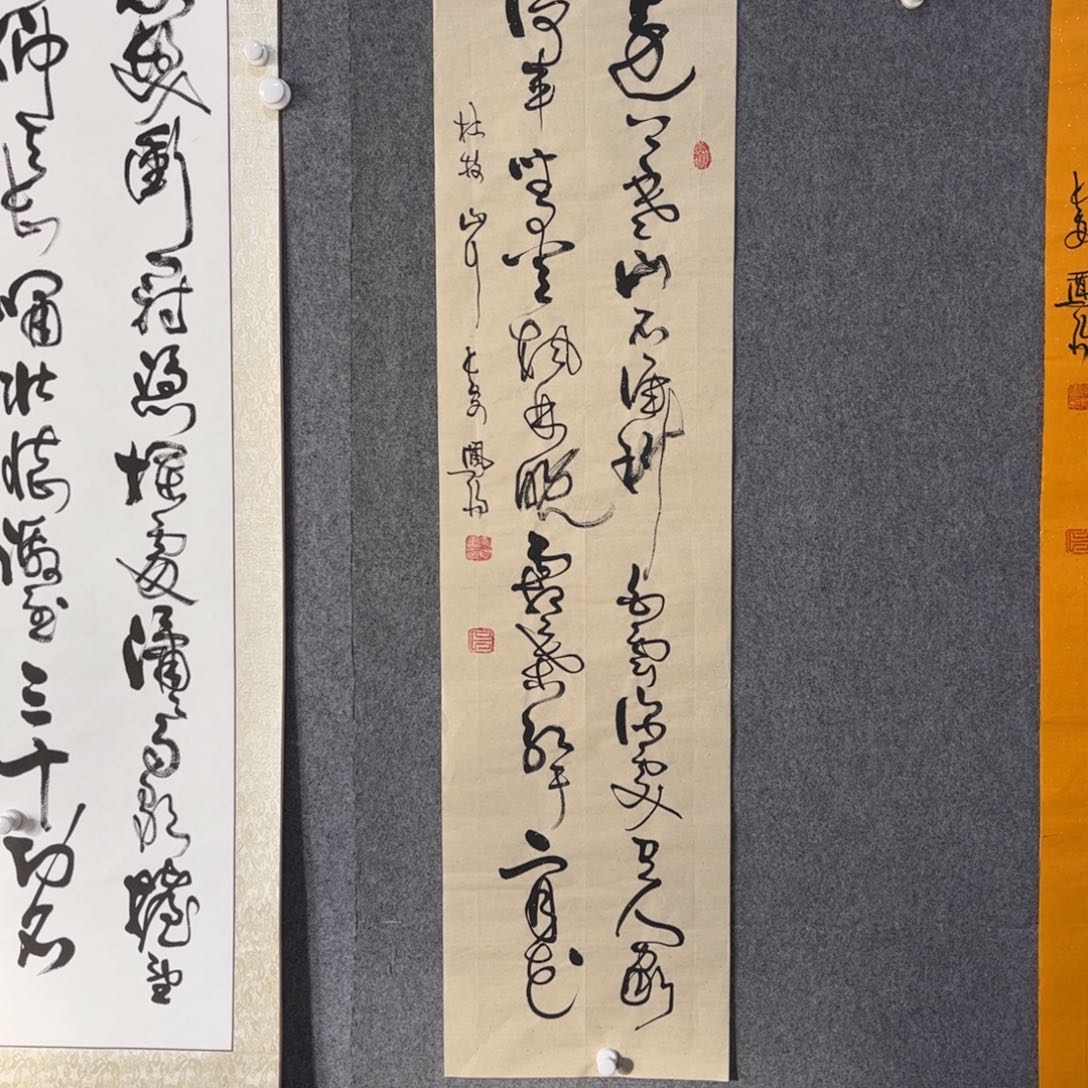 遠上寒山石徑斜白雲深處有人家
停車坐愛楓林晚霜葉紅于二月花
杜牧山行
髮衝冠憑欄處瀟瀟雨歇擡望
仰天長嘯壯懷激烈三十功名